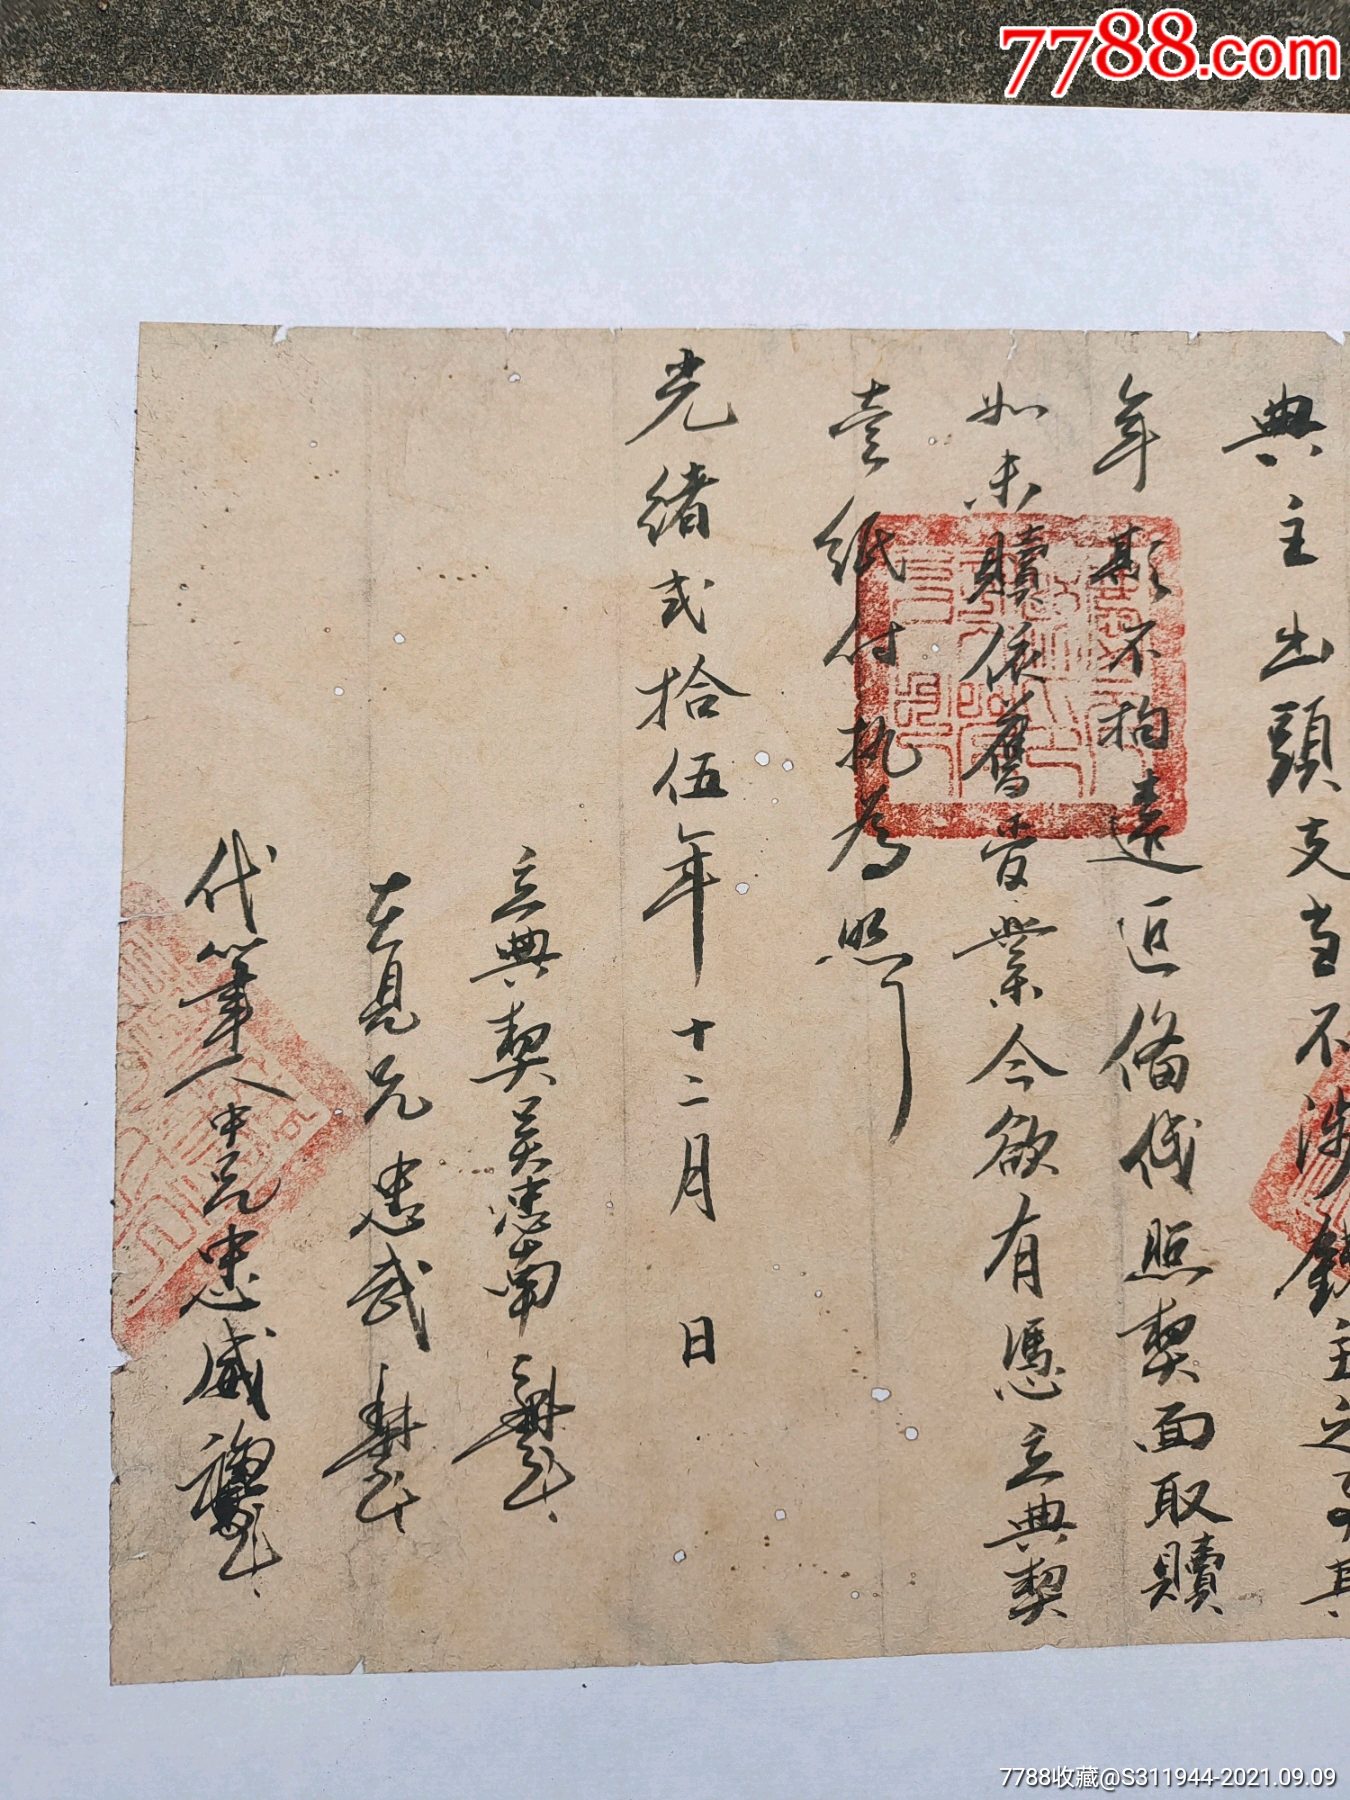 7788.com
典主出頭支当不涉錢主之事其
年限不拘遠近俻伐照契面取贖
如未贖依舊管業今欲有憑立典契
壹紙付執為照
光緒弍拾伍年十二月 日
立典契吴忠南
在見兄忠武
代筆人中兄忠威
7788收藏@S311944-2021.09.09